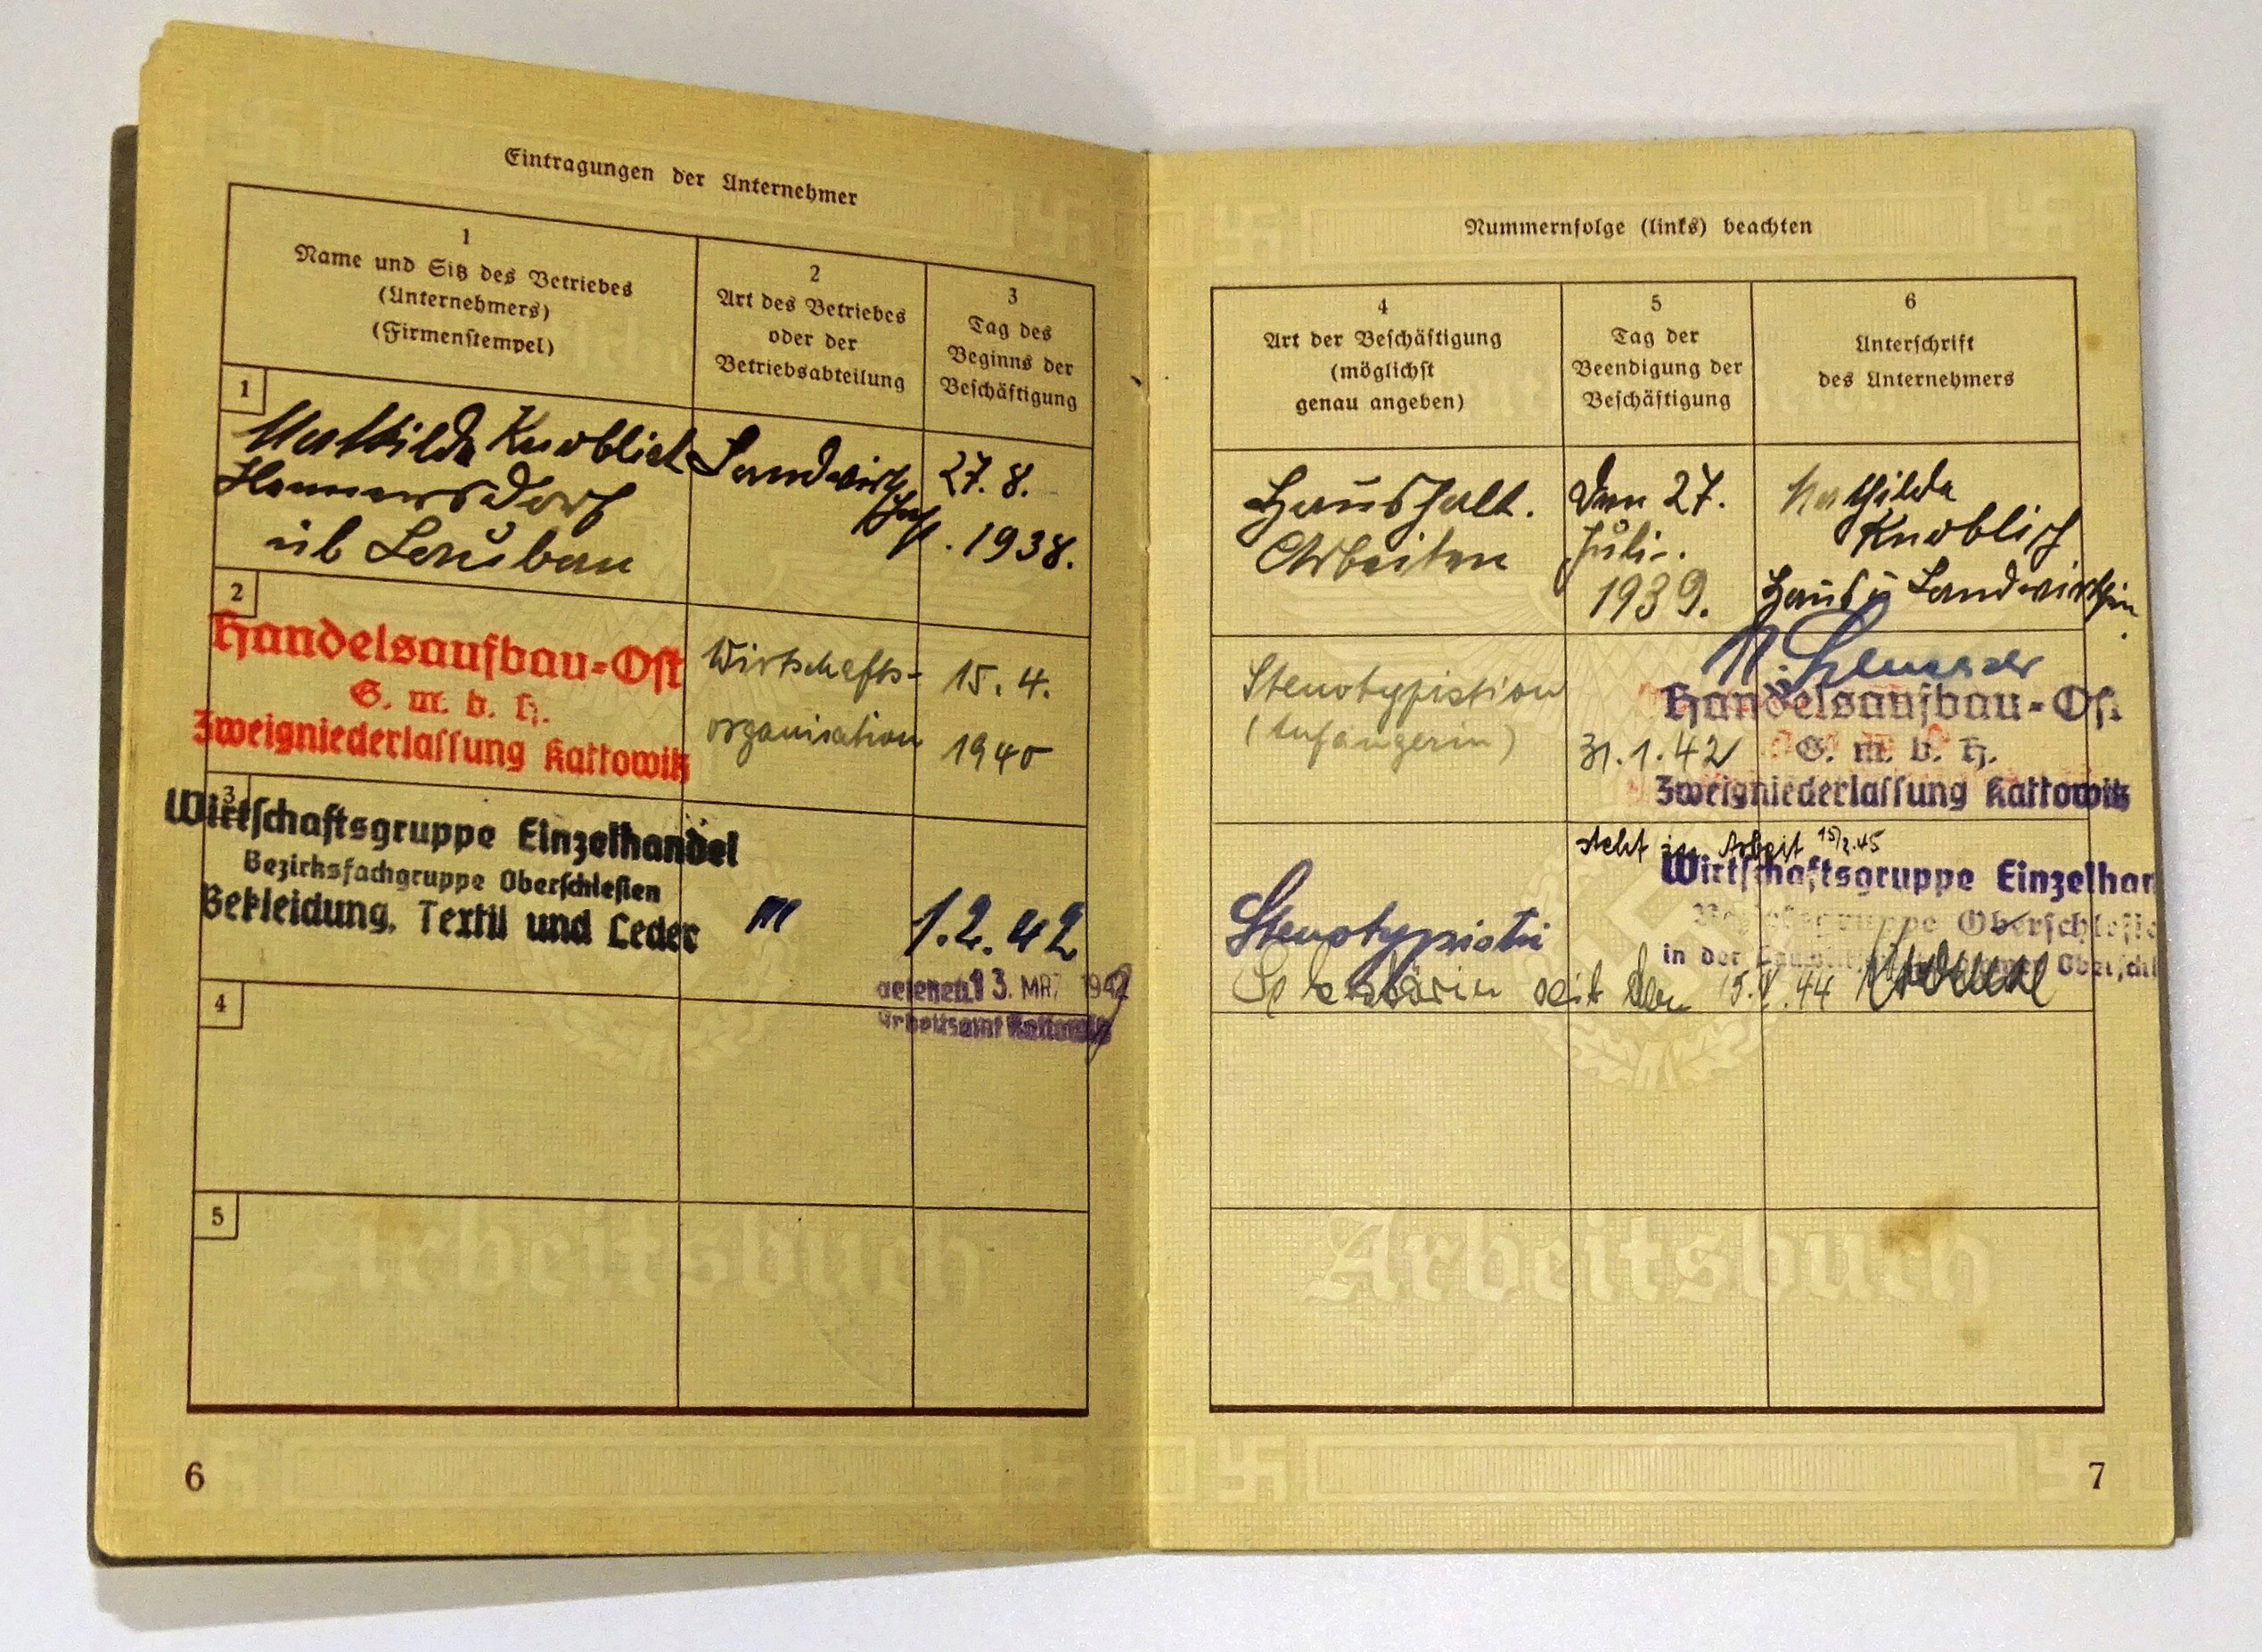 Eintragungen der Unternehmer
1
Name und Sitz des Betriebes
(Unternehmers)
(Firmenstempel)
2
Art des Betriebes
oder der
Betriebsabteilung
3
Tag des
Beginns der
Beschäftigung
1
Mathilda Knoblich
Hennersdorf
üb Lauban
Landwirt
schaft
27. 8.
1938.
2
Handelsaufbau-Ost
G. m. b. H.
Zweigniederlassung Kattowitz
Wirtschafts-
organisation
15. 4.
1940
3
Wirtschaftsgruppe Einzelhandel
Bezirksfachgruppe Oberschlesien
Bekleidung, Textil und Leder
"
1. 2. 42
gesehen 13. MRZ 1942
Arbeitsamt Kattowitz
4
5
Arbeitsbuch
6
Nummernfolge (links) beachten
4
Art der Beschäftigung
(möglichst
genau angeben)
5
Tag der
Beendigung der
Beschäftigung
6
Unterschrift
des Unternehmers
Haushalt.
Arbeiten
den 27.
Juli.
1939.
Mathilda
Knoblich
Haus u Landwirthin
Stenotypistion
(Anfängerin)
31. 1. 42
Handelsaufbau-Ost
G. m. b. H.
Zweigniederlassung Kattowitz
steht in Arbeit
Stenotypisti
Wirtschaftsgruppe Einzelhan
Oberschlesie
in der
Sekretärin seit den 44
Arbeitsbuch
7